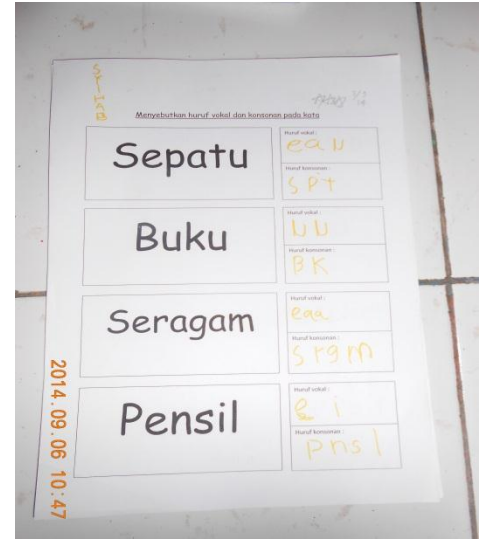 SYIHAB
Menyebutkan huruf vokal dan konsonan pada kata
Sepatu
Huruf vokal :
eau
Huruf konsonan :
spt
Buku
Huruf vokal :
uu
Huruf konsonan :
BK
Seragam
Huruf vokal :
eaa
Huruf konsonan :
srgm
Pensil
Huruf vokal :
e i
Huruf konsonan :
pnsl
2014.09.06 10:47